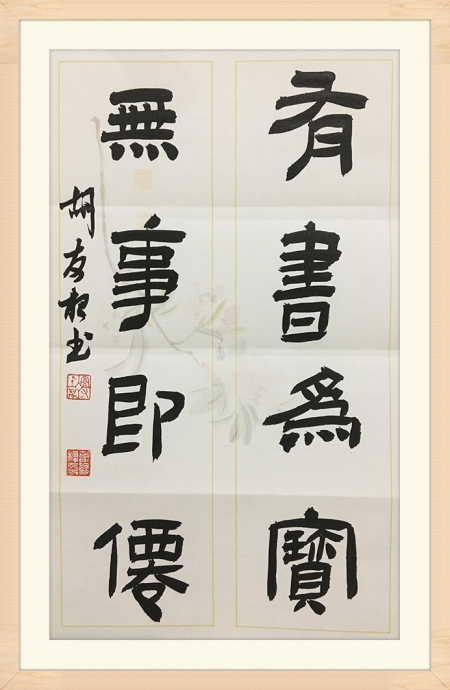 有書為寶
無事即僊
胡友松书